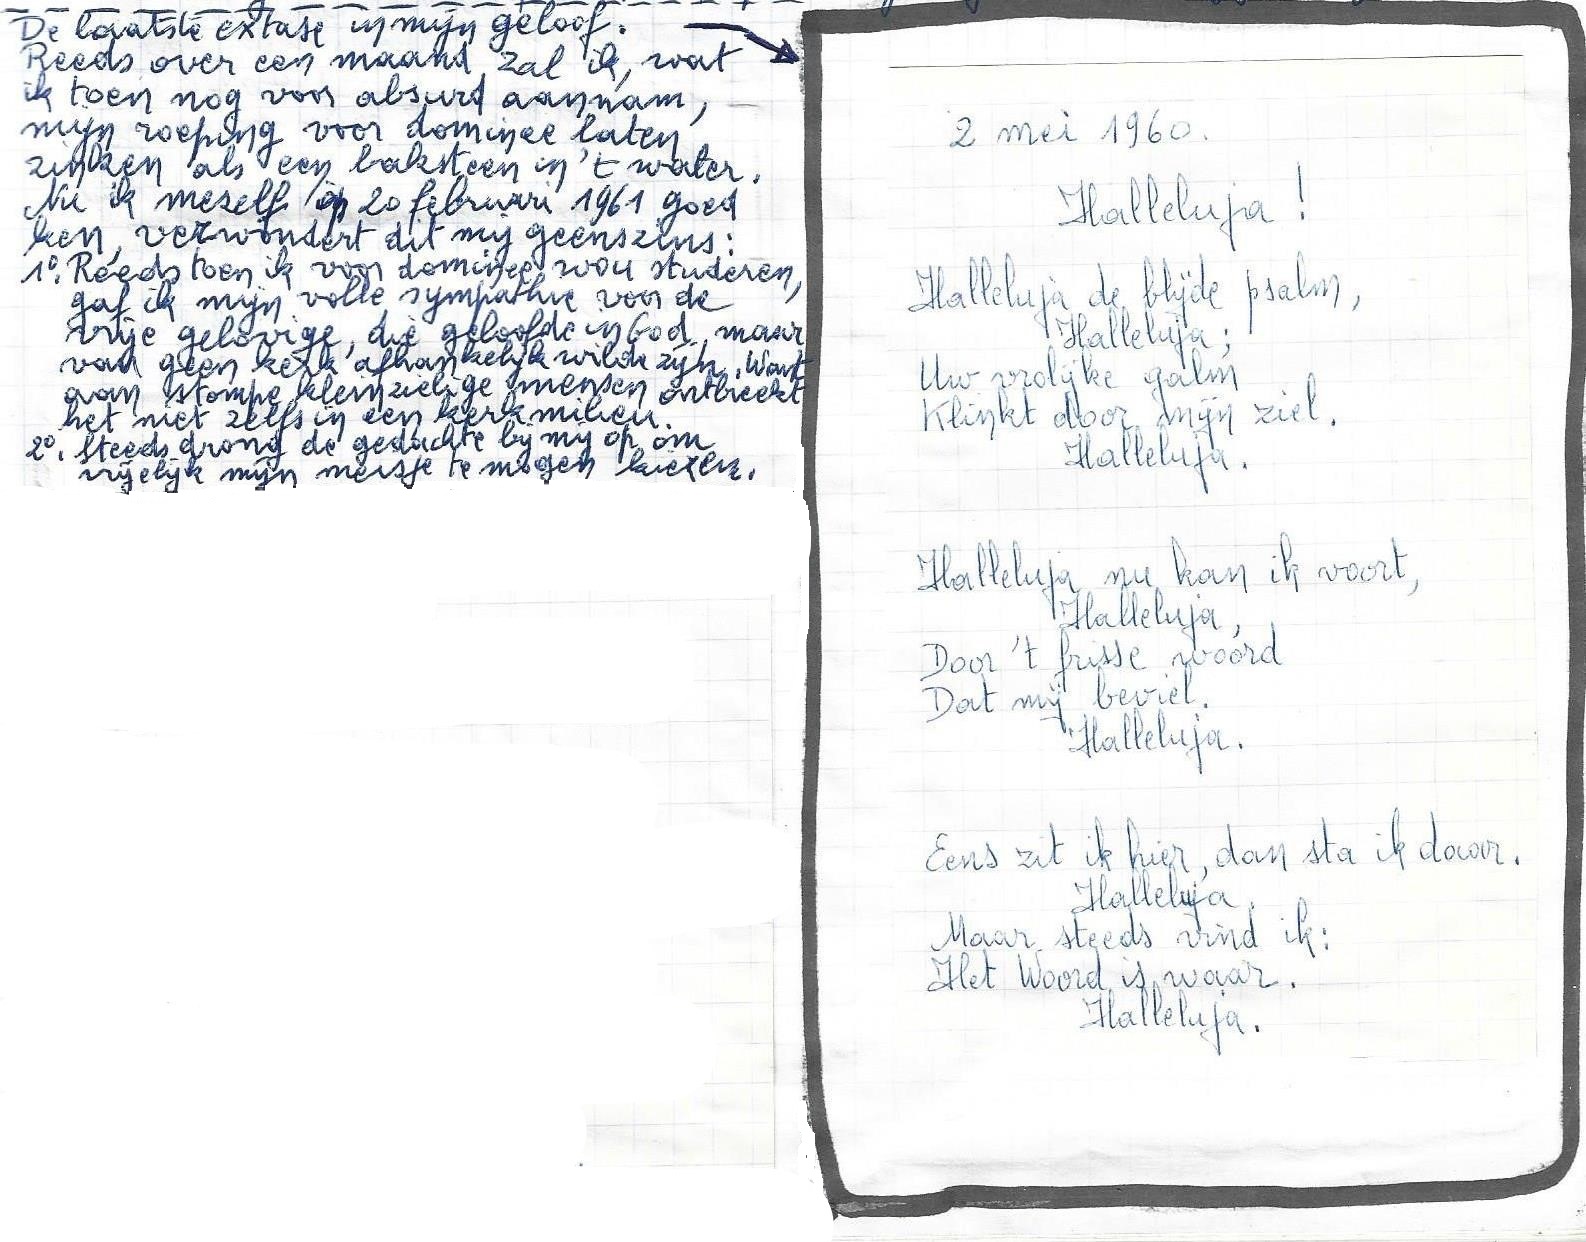 De laatste extase in mijn geloof.
Reeds over een maand zal ik, wat
ik toen nog voor absurd aannam,
mijn roeping voor dominee laten
zinken als een baksteen in 't water.
Nu ik mezelf op 20 februari 1961 goed
ken, verwondert dit mij geenszins:
1º. Reeds toen ik voor dominee wou studeren,
gaf ik mijn volle sympathie voor de
vrije gelovige, die geloofde in God, maar
van geen kerk afhankelijk wilde zijn. Want
aan stompe kleinzielige mensen ontbreekt
het niet zelfs in een kerkmilieu.
2º. Steeds drong de gedachte bij mij op om
vrijelijk mijn meisje te mogen kiezen.
2 mei 1960.
Halleluja !
Halleluja de blijde psalm,
Halleluja;
Uw vrolijke galm
Klinkt door mijn ziel.
Halleluja.
Halleluja nu kan ik voort,
Halleluja,
Door 't frisse woord
Dat mij beviel.
Halleluja.
Eens zit ik hier, dan sta ik daar.
Halleluja.
Maar steeds vind ik:
Het Woord is waar.
Halleluja.